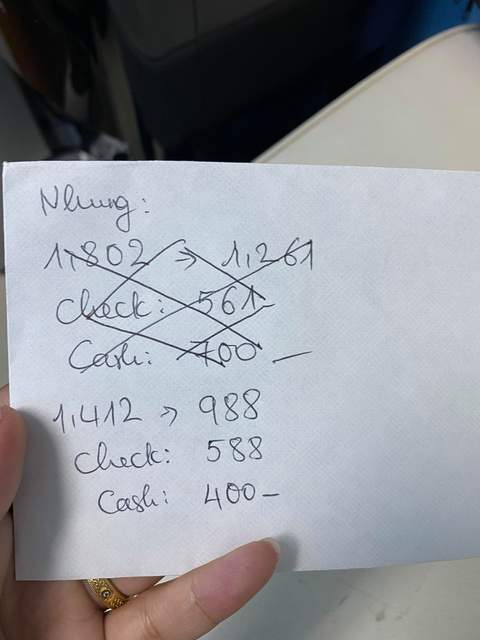 Nhung:
1,802 → 1,261
Check: 561-
Cash: 700 -
1,412 → 988
Check: 588
Cash: 400-